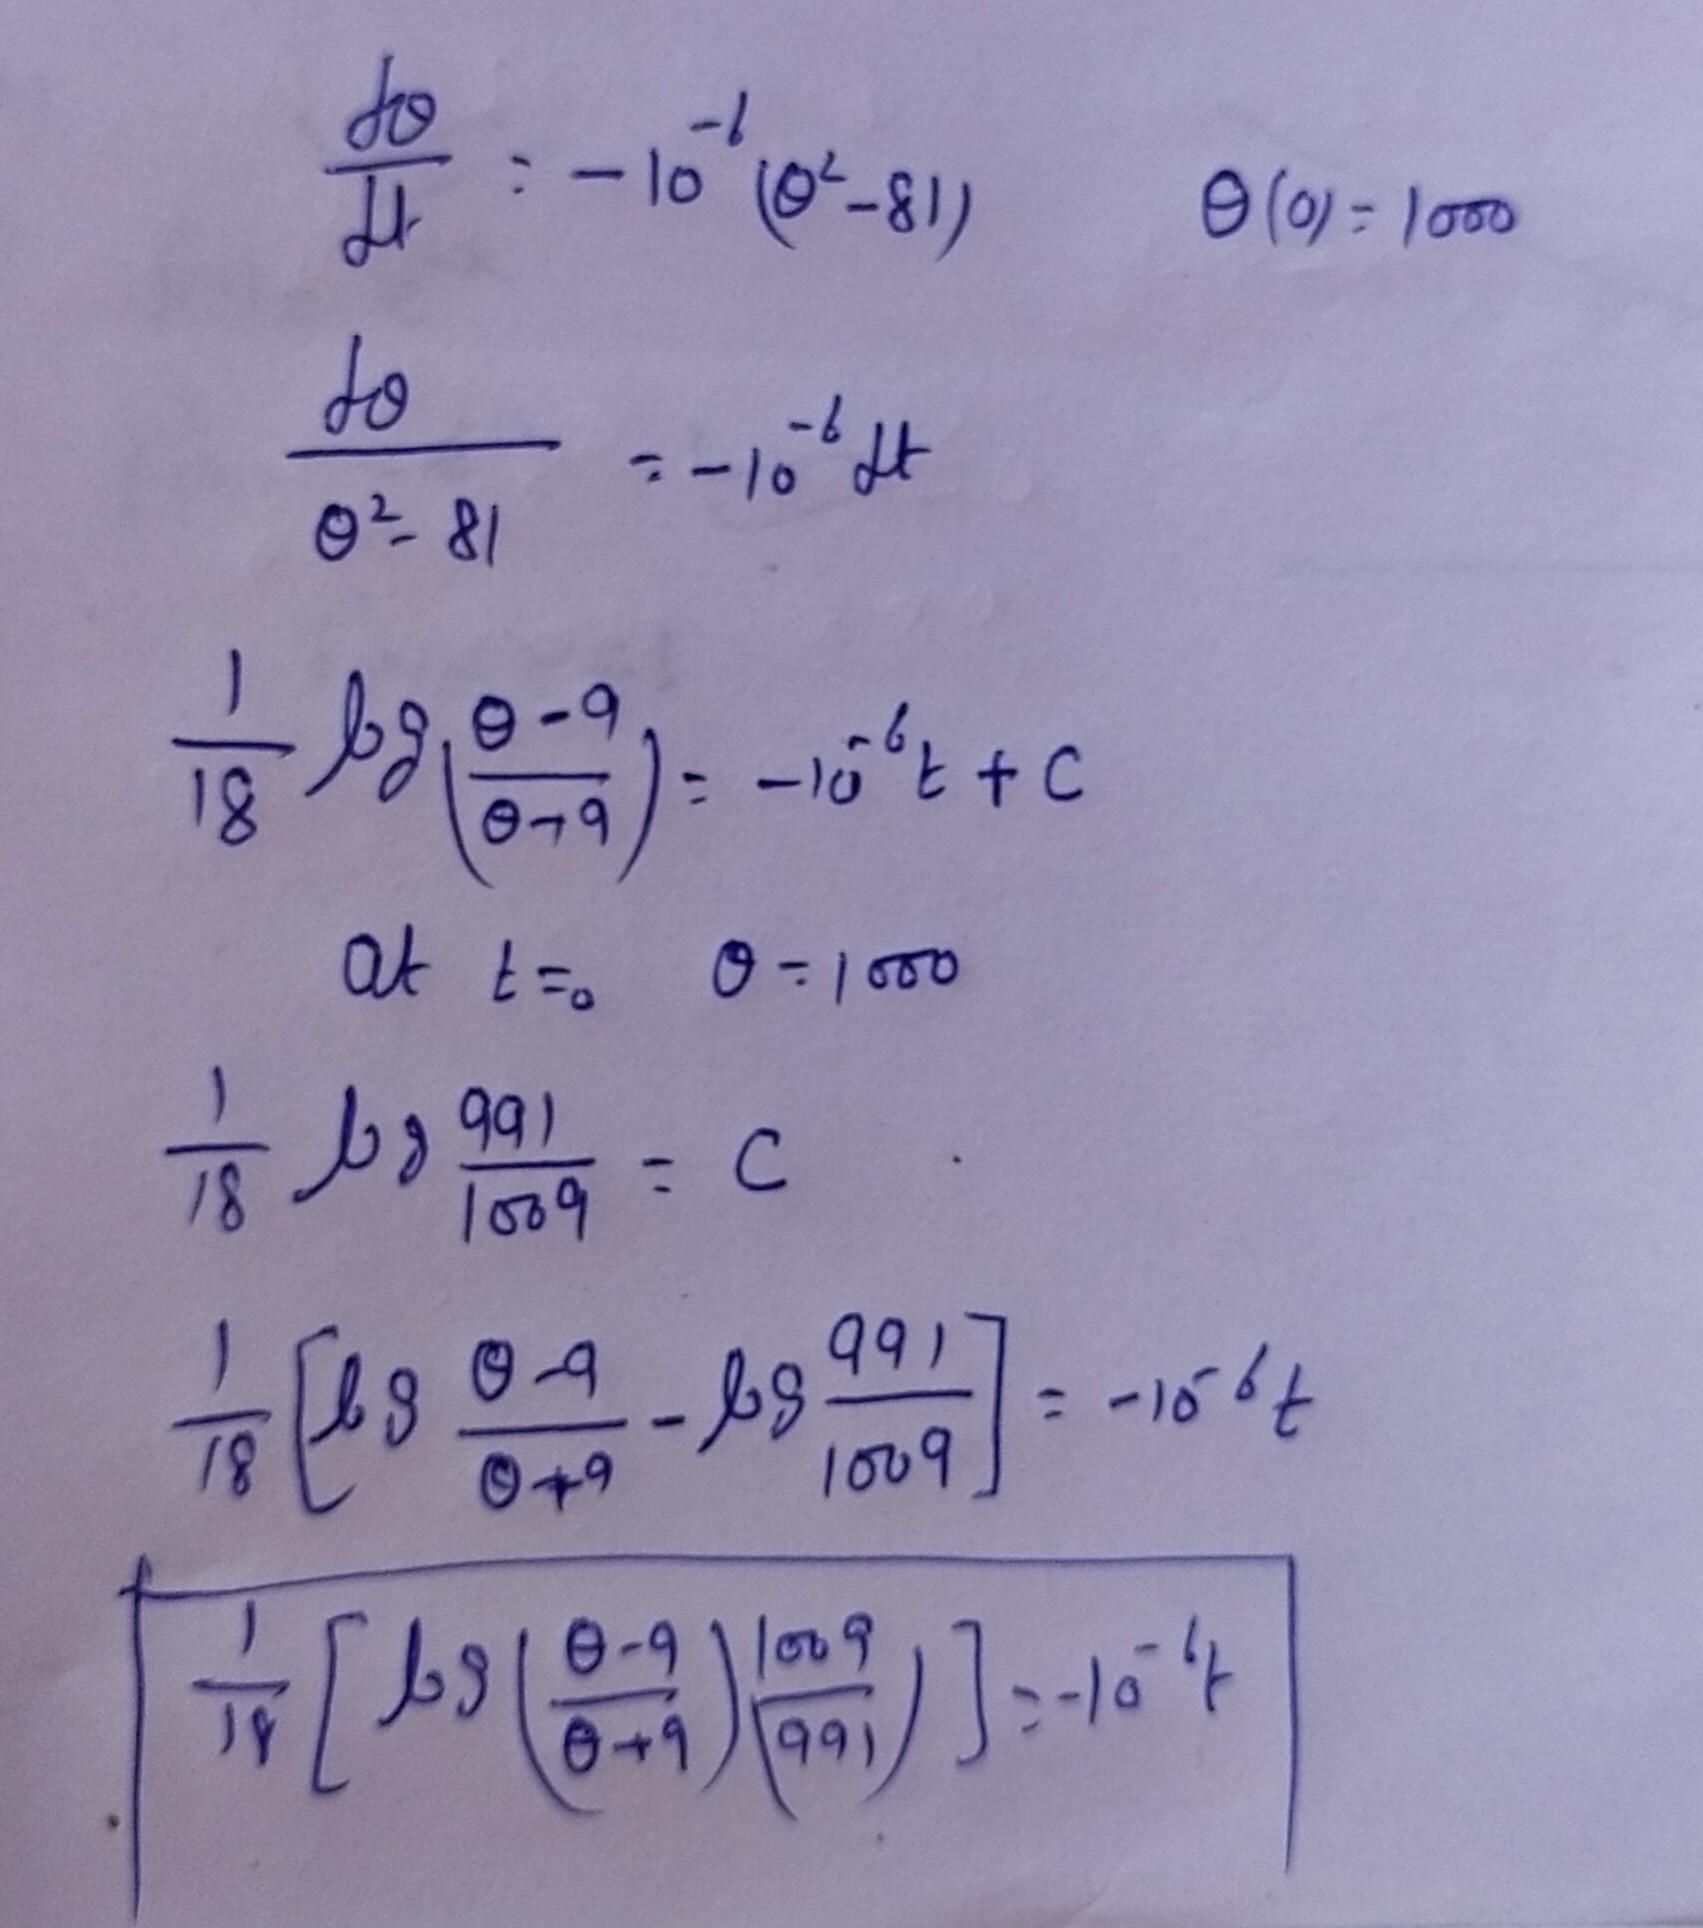 dθ/dt = -10^-6 (θ² - 81)    θ(0) = 1000
dθ/(θ² - 81) = -10^-6 dt
1/18 log((θ-9)/(θ+9)) = -10^-6 t + C
at t=0 θ = 1000
1/18 log 991/1009 = C
1/18 [log (θ-9)/(θ+9) - log 991/1009] = -10^-6 t
1/18 [log((θ-9)/(θ+9))(1009/991)] = -10^-6 t